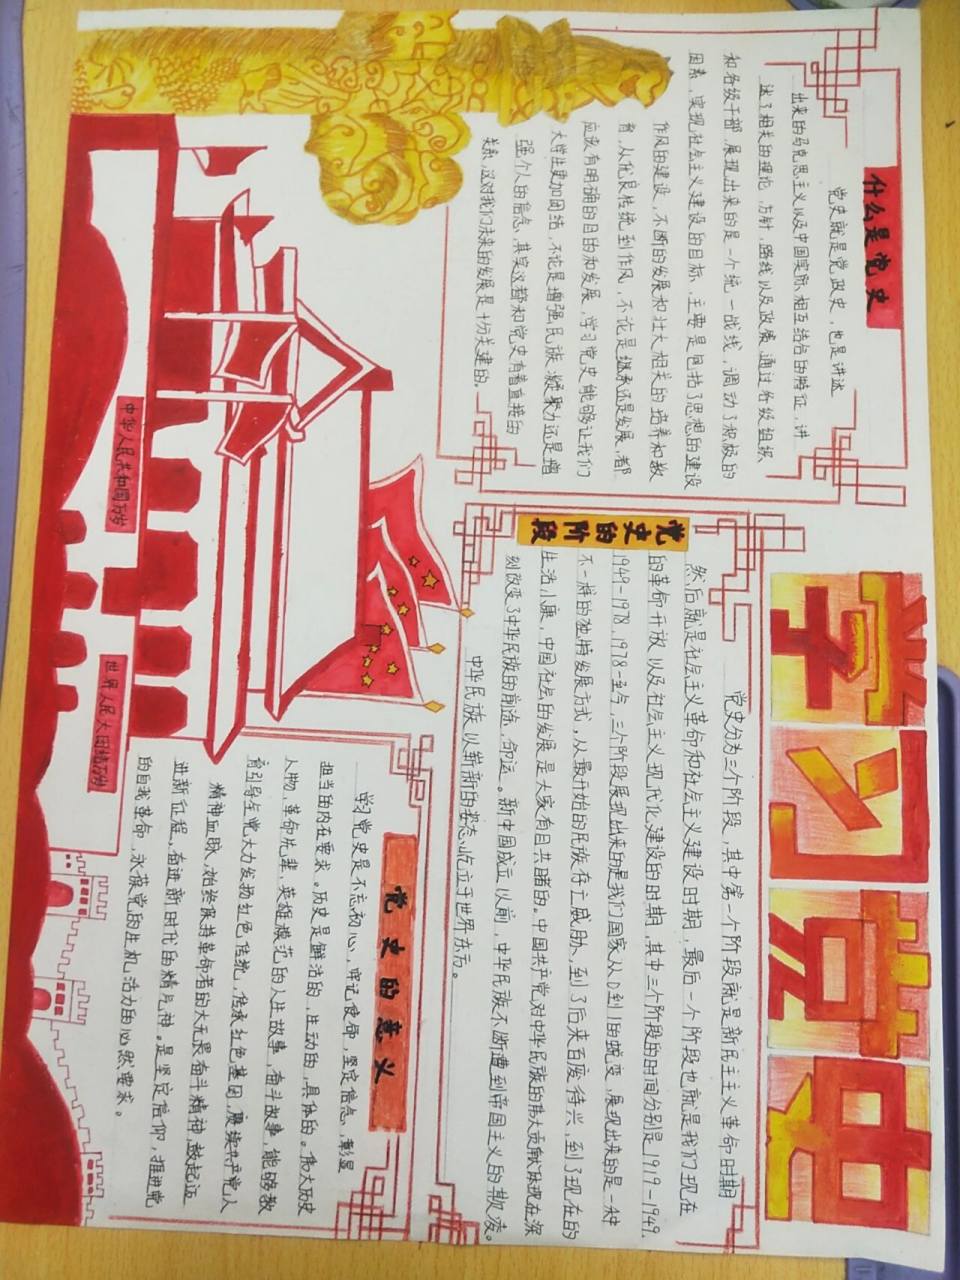 学习党史
什么是党史
党史就是党政史，也是讲述
出来的马克思主义以及中国实际，相互结合的特征，讲
述了相关的理论，方针，路线以及政策，通过各级组织
和各级干部，展现出来的是一个统一战线，调动了积极的
因素，实现社会主义建设的目标，主要是包括了思想的建设
作风的建设，不断的发展和壮大，相关的培养和教
育，从优良传统到作风，不论是继承还是发展，都
应该有明确的目的和发展，学习党史能够让我们
大学生更加团结，不论是增强民族凝聚力还是增
强个人的信念，其实这都和党史有着直接的
关系，这对我们未来的发展是十分关键的。
党史的阶段
党史分为三个阶段，其中第一个阶段就是新民主主义革命时期
然后就是社会主义革命和社会主义建设时期，最后一个阶段也就是我们现在
的革命开放以及社会主义现代化建设的时期，其中三个阶段的时间分别是1919-1949，
1949-1978，1978-至今，三个阶段展现出来的是我们国家从0到1的蜕变，展现出来的是一种
不一样的独特发展方式，从最开始的民族存亡威胁，到了后来百废待兴，到了现在的
生活小康，中国社会的发展是大家有目共睹的。中国共产党对中华民族的伟大贡献体现在深
刻改变了中华民族的前途，命运。新中国成立以前，中华民族不断遭到帝国主义的欺凌。
中华民族以崭新的姿态屹立于世界东方。
党史的意义
学习党史是不忘初心，牢记使命，坚定信念，彰显
担当的内在要求。历史是鲜活的，生动的，具体的。伟大历史
人物，革命先辈，英雄模范的人生故事，奋斗故事，能够教
育引导全党大力发扬红色传统，传承红色基因，赓续共产党人
精神血脉，始终保持革命者的大无畏奋斗精神，鼓起迈
进新征程，奋进新时代的精气神。是坚定信仰，推进党
的自我革命，永葆党的生机活力的必然要求。
中华人民共和国万岁
世界人民大团结万岁